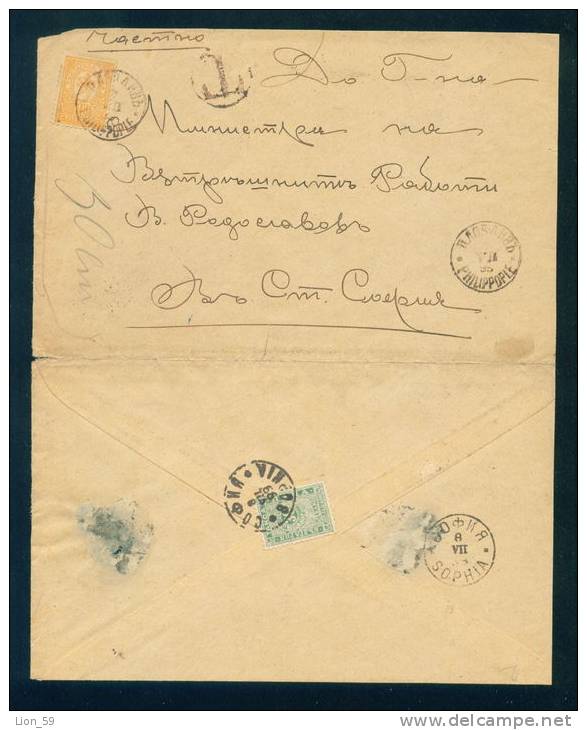 Частно
T
До Г-на
Министра на
Вѫтрѣшнитѣ Работи
В. Радославовъ
Въ Ст. София
50
ПЛОВДИВЪ
PHILIPPOPLE
ПЛОВДИВЪ
VII
PHILIPPOPLE
СОФИЯ
SOPHIA
СОФИЯ
8
VII
SOPHIA
Lion_59
www.delcampe.net